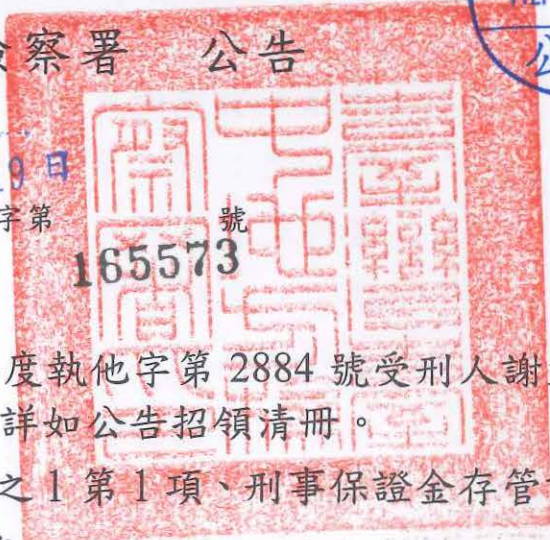 察署 公告
9日
字第 號
165573
度執他字第 2884 號受刑人謝
詳如公告招領清冊。
之1第1項、刑事保證金存管